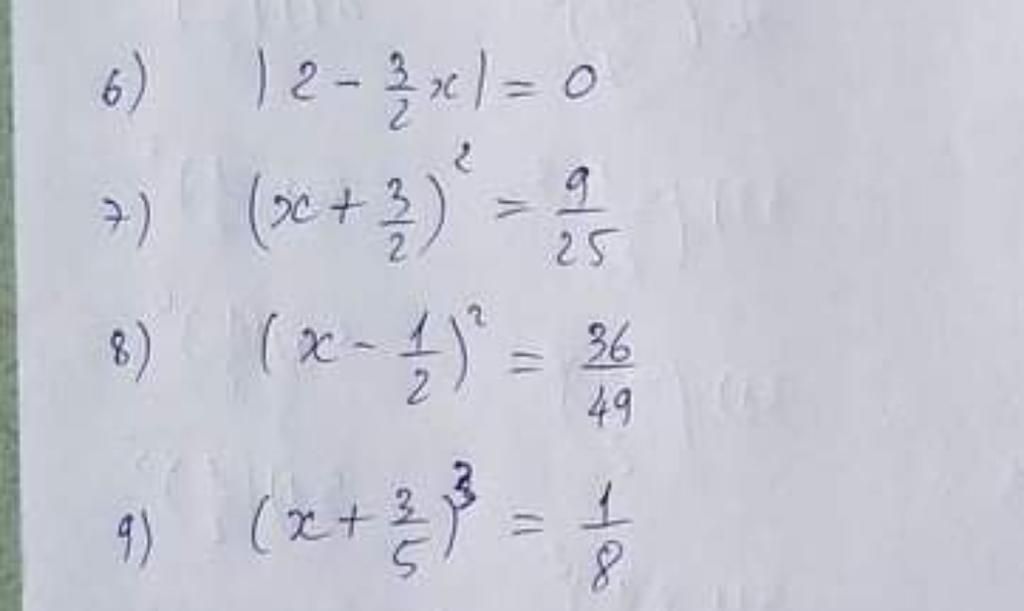 6) |2 - 3/2 x| = 0
7) (x + 3/2)² = 9/25
8) (x - 1/2)² = 36/49
9) (x + 3/5)³ = 1/8